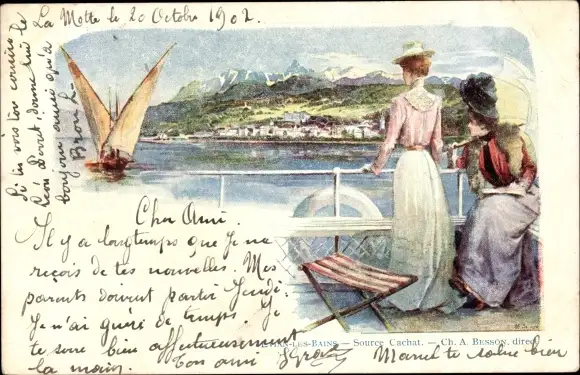 La Motte le 20 Octobre 1902.
Si tu vois ton cousin le
Léo Devert, donne lui le
bonjour ainsi qu'à
Cher Ami.
Il y a longtemps que je ne
reçois de tes nouvelles. Mes
parents doivent partir Jeudi.
Je n'ai guère de temps. Je
te serre bien affectueusement
la main. Ton ami
Marcel te salue bien
-LES-BAINS — Source Cachat. — Ch. A. BESSON, direc